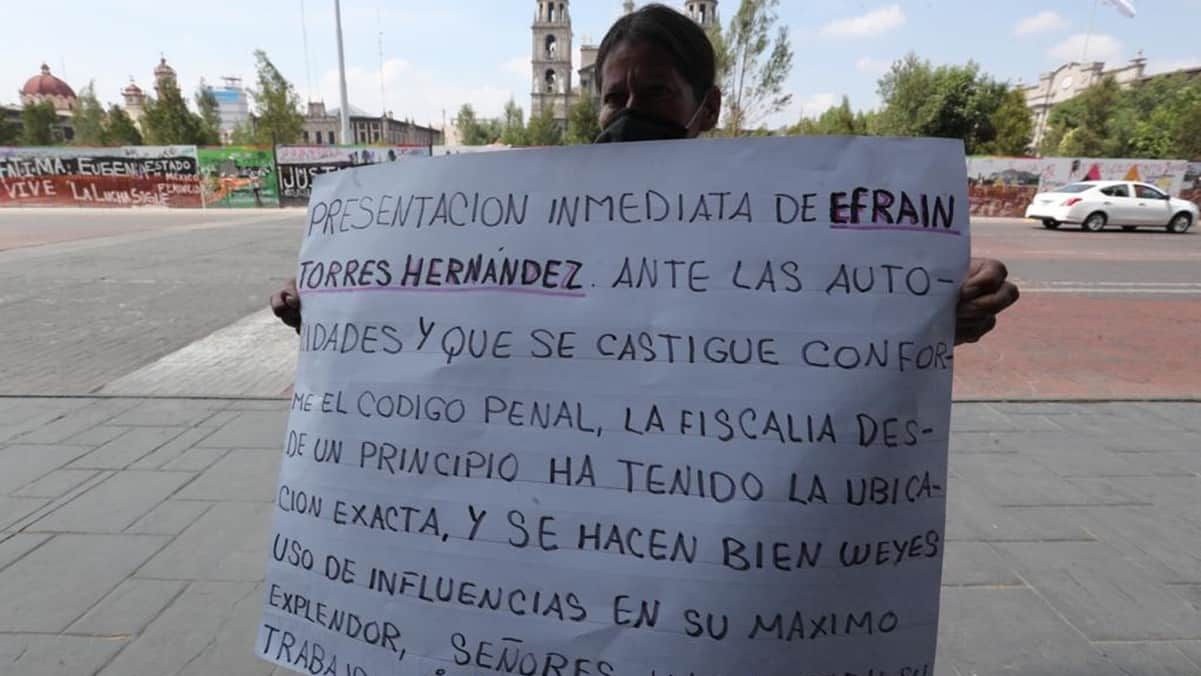 FATIMA. EUGENIA
ESTADO
MÉXICO
VIVE LA LUCHA SIGUE
JUST
PRESENTACION INMEDIATA DE EFRAIN
TORRES HERNÁNDEZ. ANTE LAS AUTO-
IDADES Y QUE SE CASTIGUE CONFOR-
ME EL CODIGO PENAL, LA FISCALIA DES-
DE UN PRINCIPIO HA TENIDO LA UBICA-
CION EXACTA, Y SE HACEN BIEN WEYES
USO DE INFLUENCIAS EN SU MAXIMO
EXPLENDOR, SEÑORES
TRABAJO